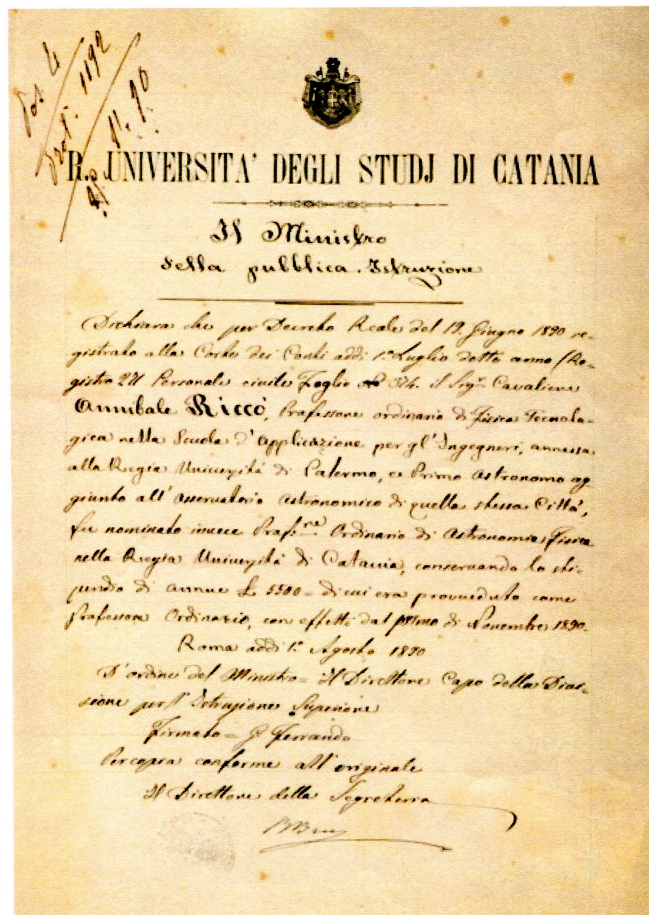 Pos. 4
Prot. 1192
R. UNIVERSITA' DEGLI STUDJ DI CATANIA
Il Ministro
della pubblica Istruzione
Dichiara che per Decreto Reale del 12 Giugno 1890 re-
gistrato alla Corte dei Conti addì 1° Luglio detto anno (Re-
gistro 211 Personale civile Foglio 374. il Sigr. Cavaliere
Annibale Riccò, Professore ordinario di Fisica Tecnolo-
gica nella Scuola d'Applicazione per gl'Ingegneri, annessa
alla Regia Università di Palermo, e Primo Astronomo ag
giunto all'Osservatorio Astronomico di quella stessa Città,
fu nominato invece Profre. Ordinario di Astronomia Fisica
nella Regia Università di Catania, conservando lo sti-
pendio di annue £ 5500 = di cui era provveduto come
Professore Ordinario, con effetti dal primo di Novembre 1890.
Roma addì 1° Agosto 1890
D'ordine del Ministro = Il Direttore Capo della Divi-
sione per l'Istruzione Superiore
Firmato = G. Ferrando
Per copia conforme all'originale
Il Direttore della Segreteria